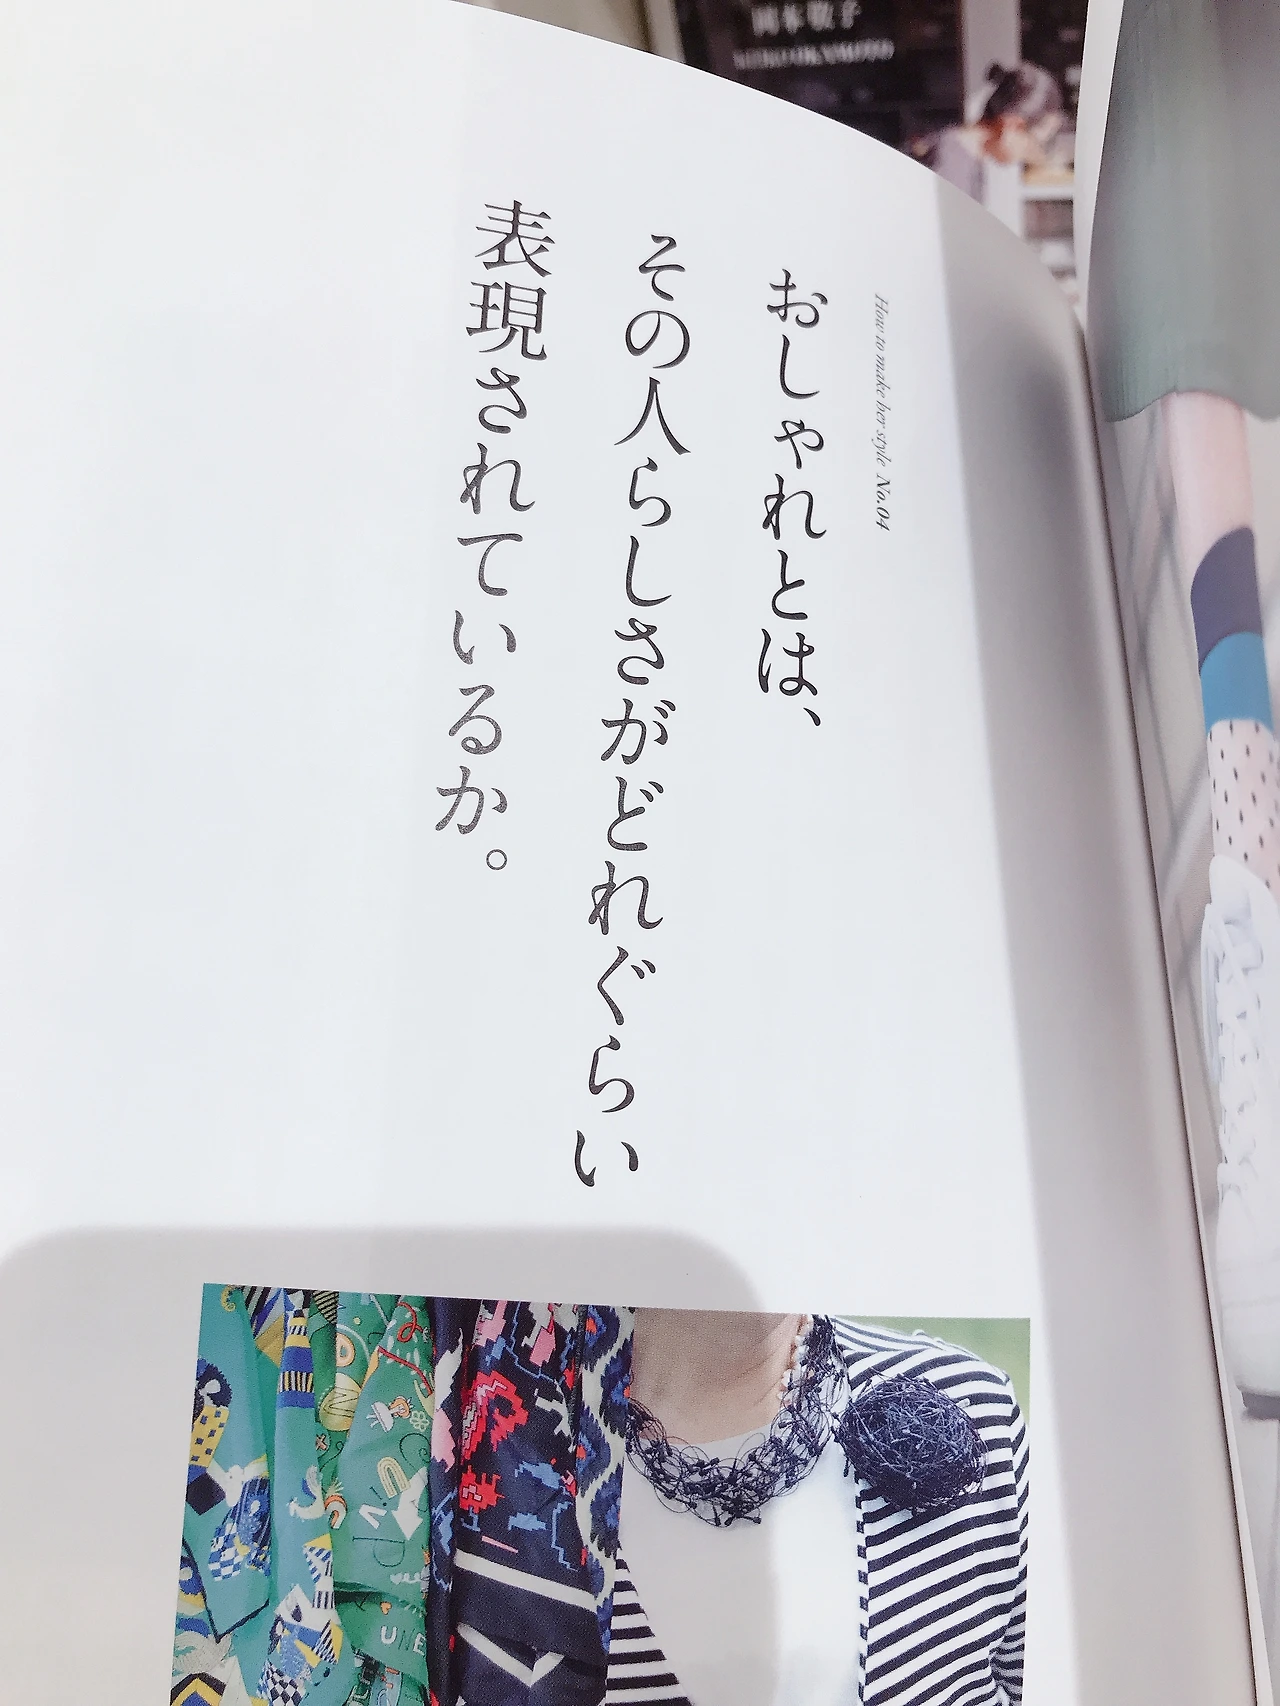 岡本敬子
KEIKO OKAMOTO
How to make her style No.04
おしゃれとは、
その人らしさがどれぐらい
表現されているか。